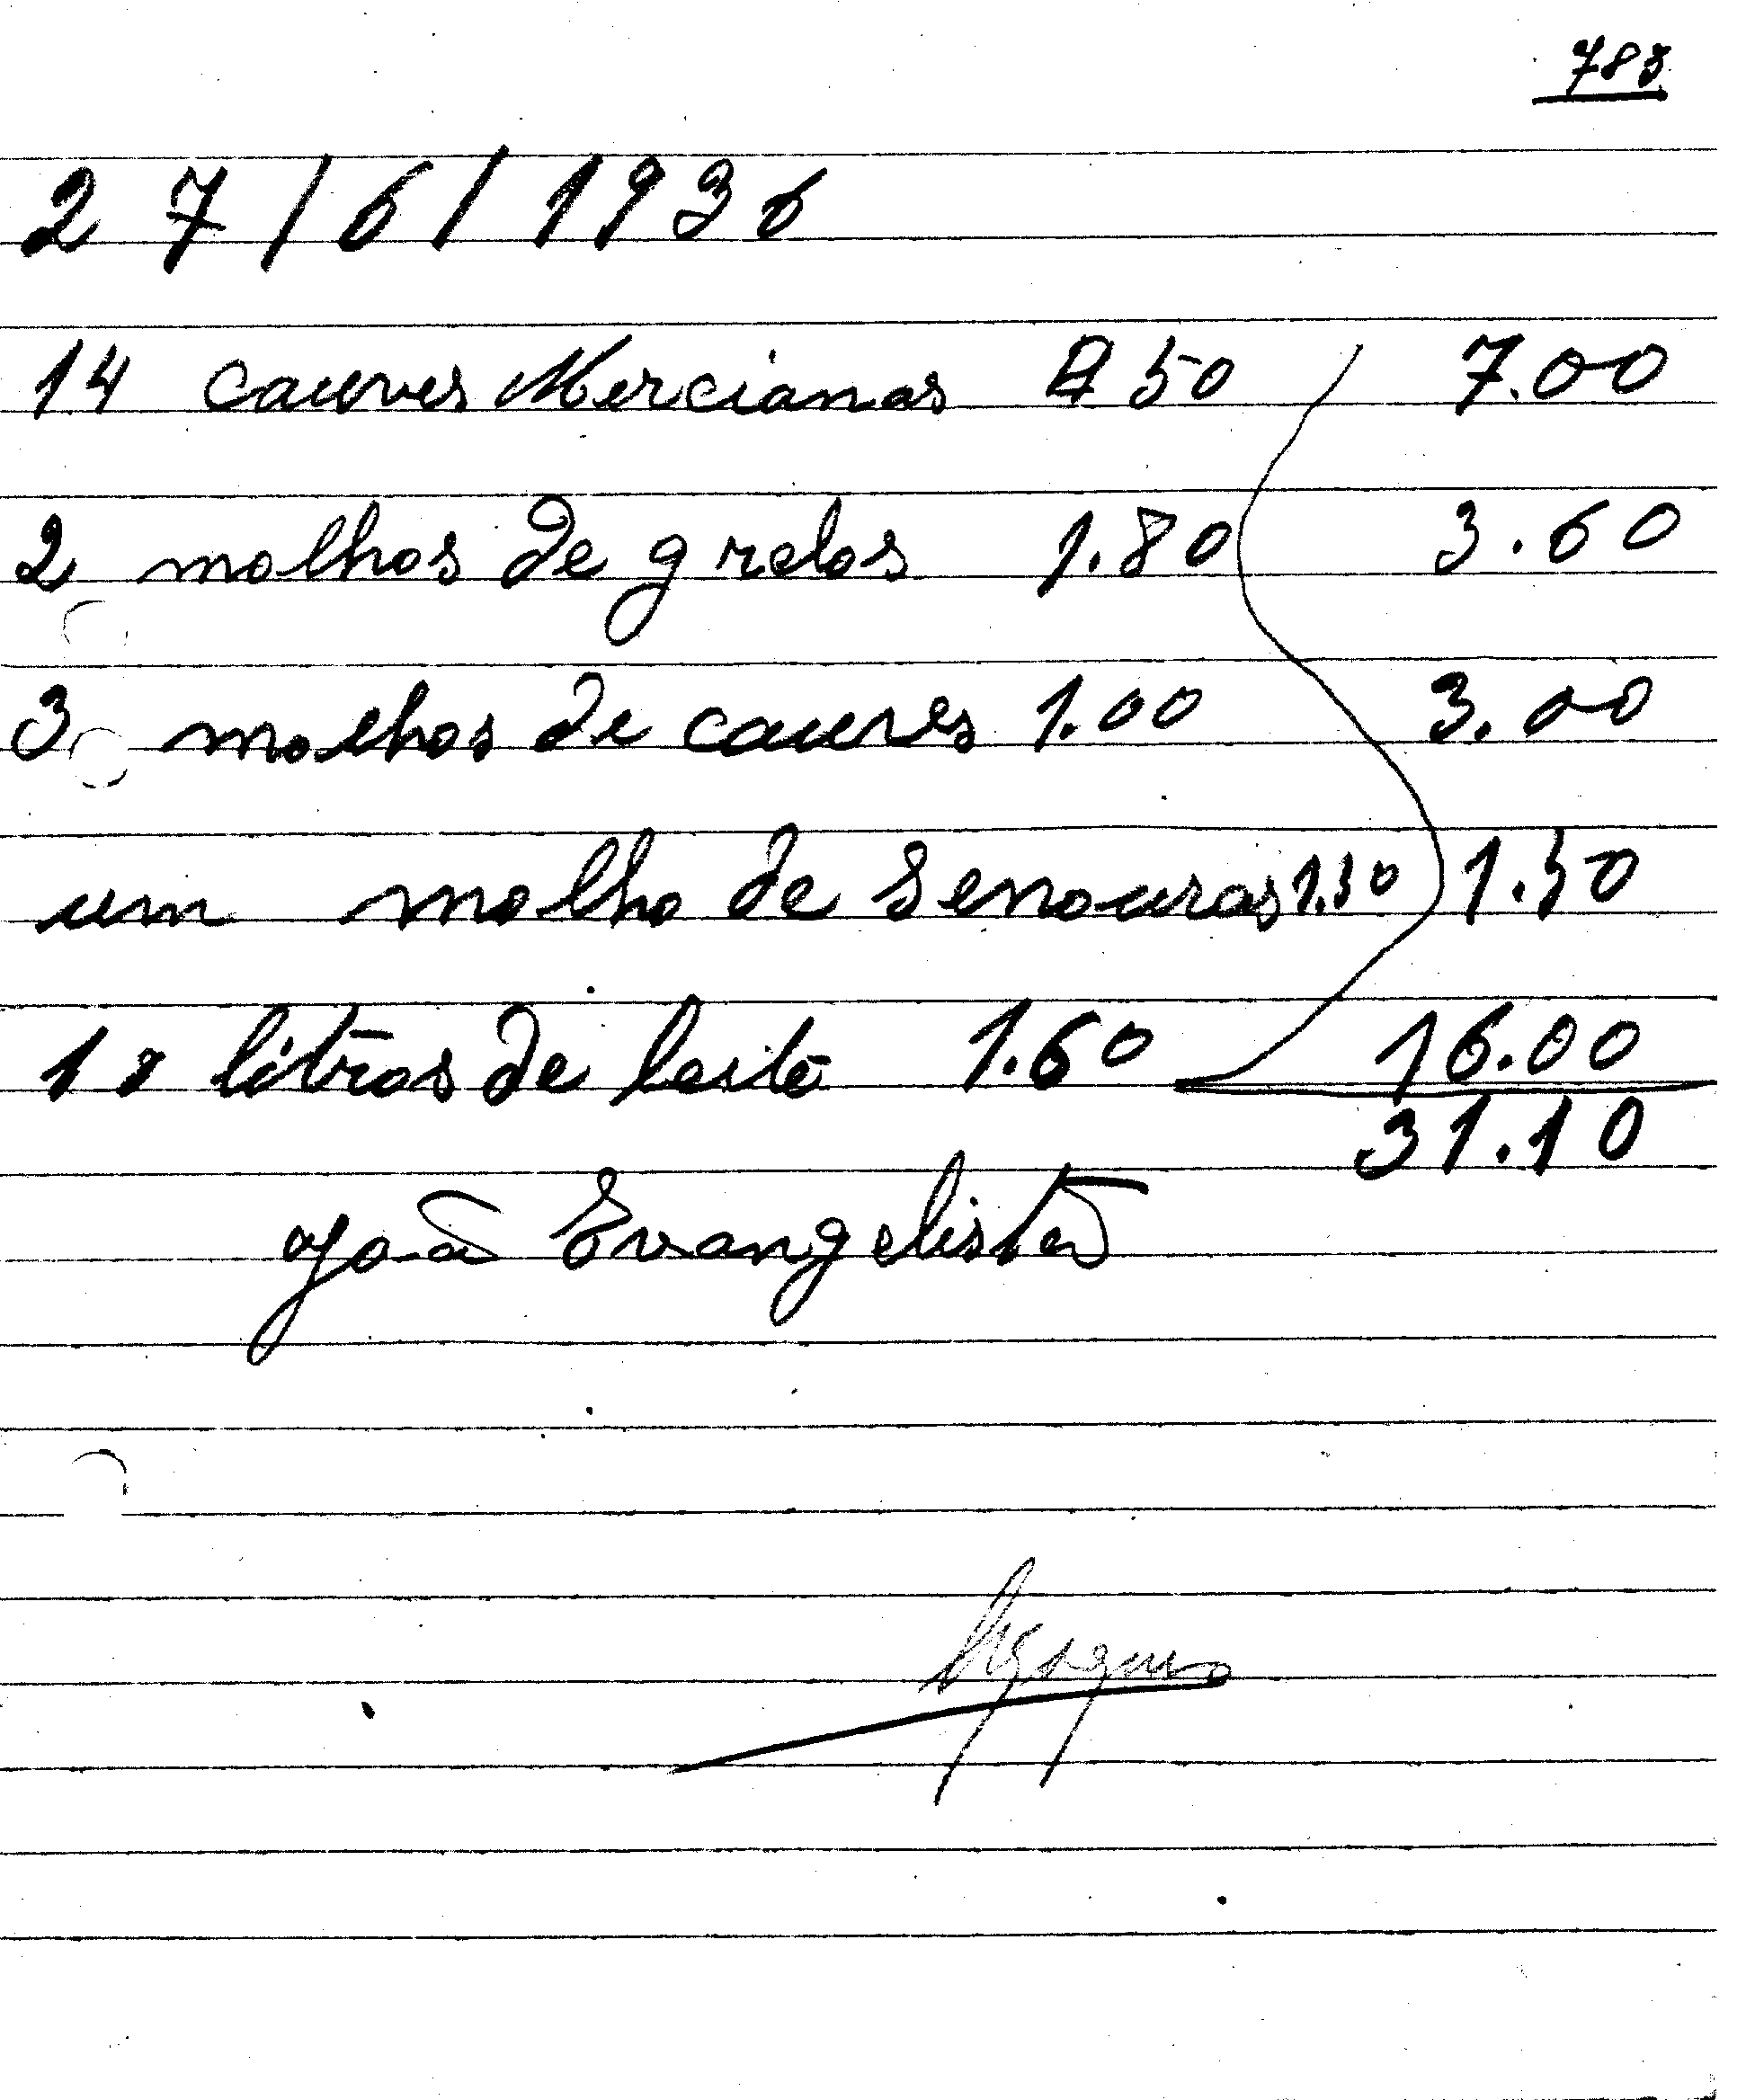 783
27/6/1936
14 couves Mercianas $50 7.00
2 molhos de grelos 1.80 3.60
3 molhos de couves 1.00 3.00
um molho de senouras 1.50 1.50
10 litros de leite 1.60 16.00
31.10
João Evangelista